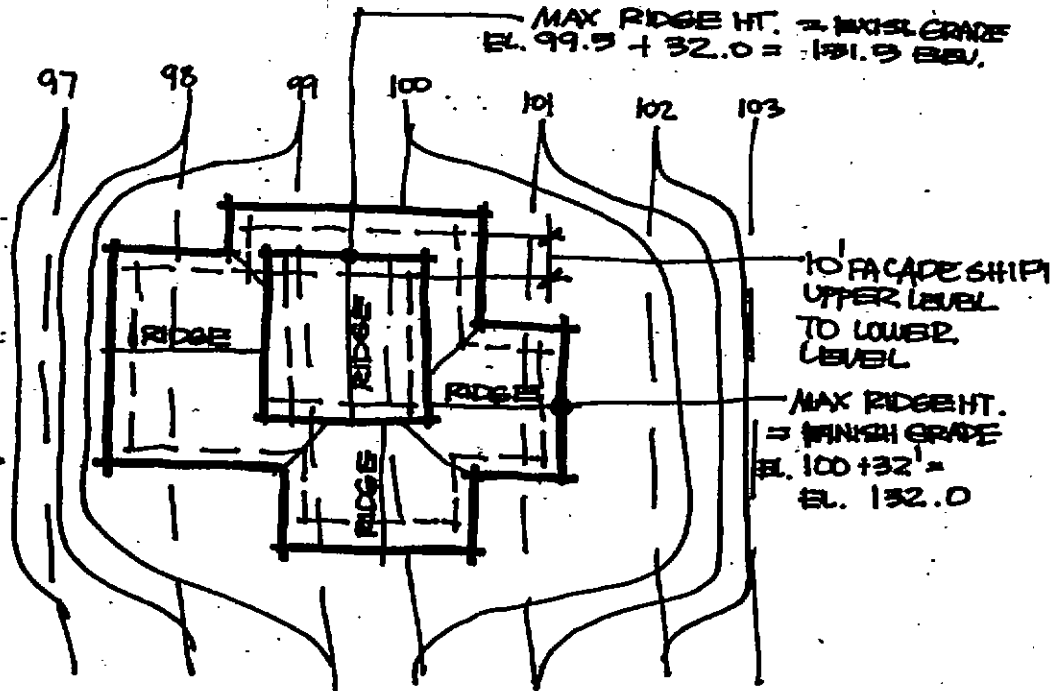 MAX RIDGE HT. = EXIST. GRADE
EL. 99.5 + 32.0 = 131.5 ELEV.
97
98
99
100
101
102
103
10' FACADE SHIFT
UPPER LEVEL
TO LOWER
LEVEL
RIDGE
RIDGE
RIDGE
RIDGE
MAX RIDGE HT.
= FINISH GRADE
EL. 100 + 32' =
EL. 132.0